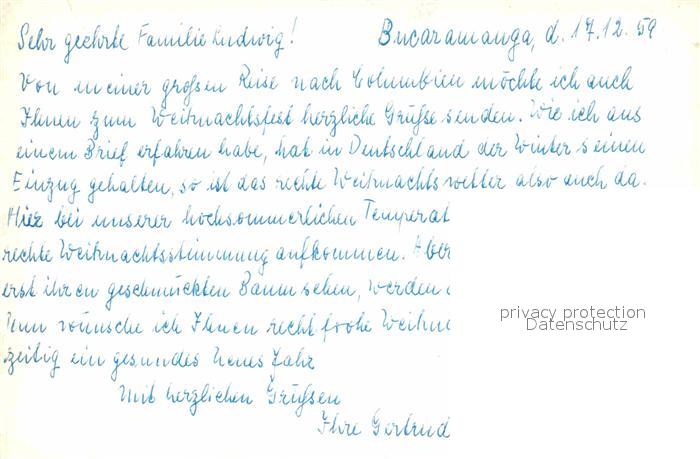 Sehr geehrte Familie Ludwig! Bucaramanga, d. 17.12.59
Von meiner großen Reise nach Columbien möchte ich auch
Ihnen zum Weihnachtsfest herzliche Grüße senden. Wie ich aus
einem Brief erfahren habe, hat in Deutschland der Winter seinen
Einzug gehalten, so ist das rechte Weihnachtswetter also auch da.
Hier bei unserer hochsommerlichen Temperat
rechte Weihnachtsstimmung aufkommen. Aber
erst ihren geschmückten Baum sehen, werden
Nun wünsche ich Ihnen recht frohe Weihn
zeitig ein gesundes Neues Jahr
Mit herzlichen Grüßen
Ihre Gertrud
privacy protection
Datenschutz